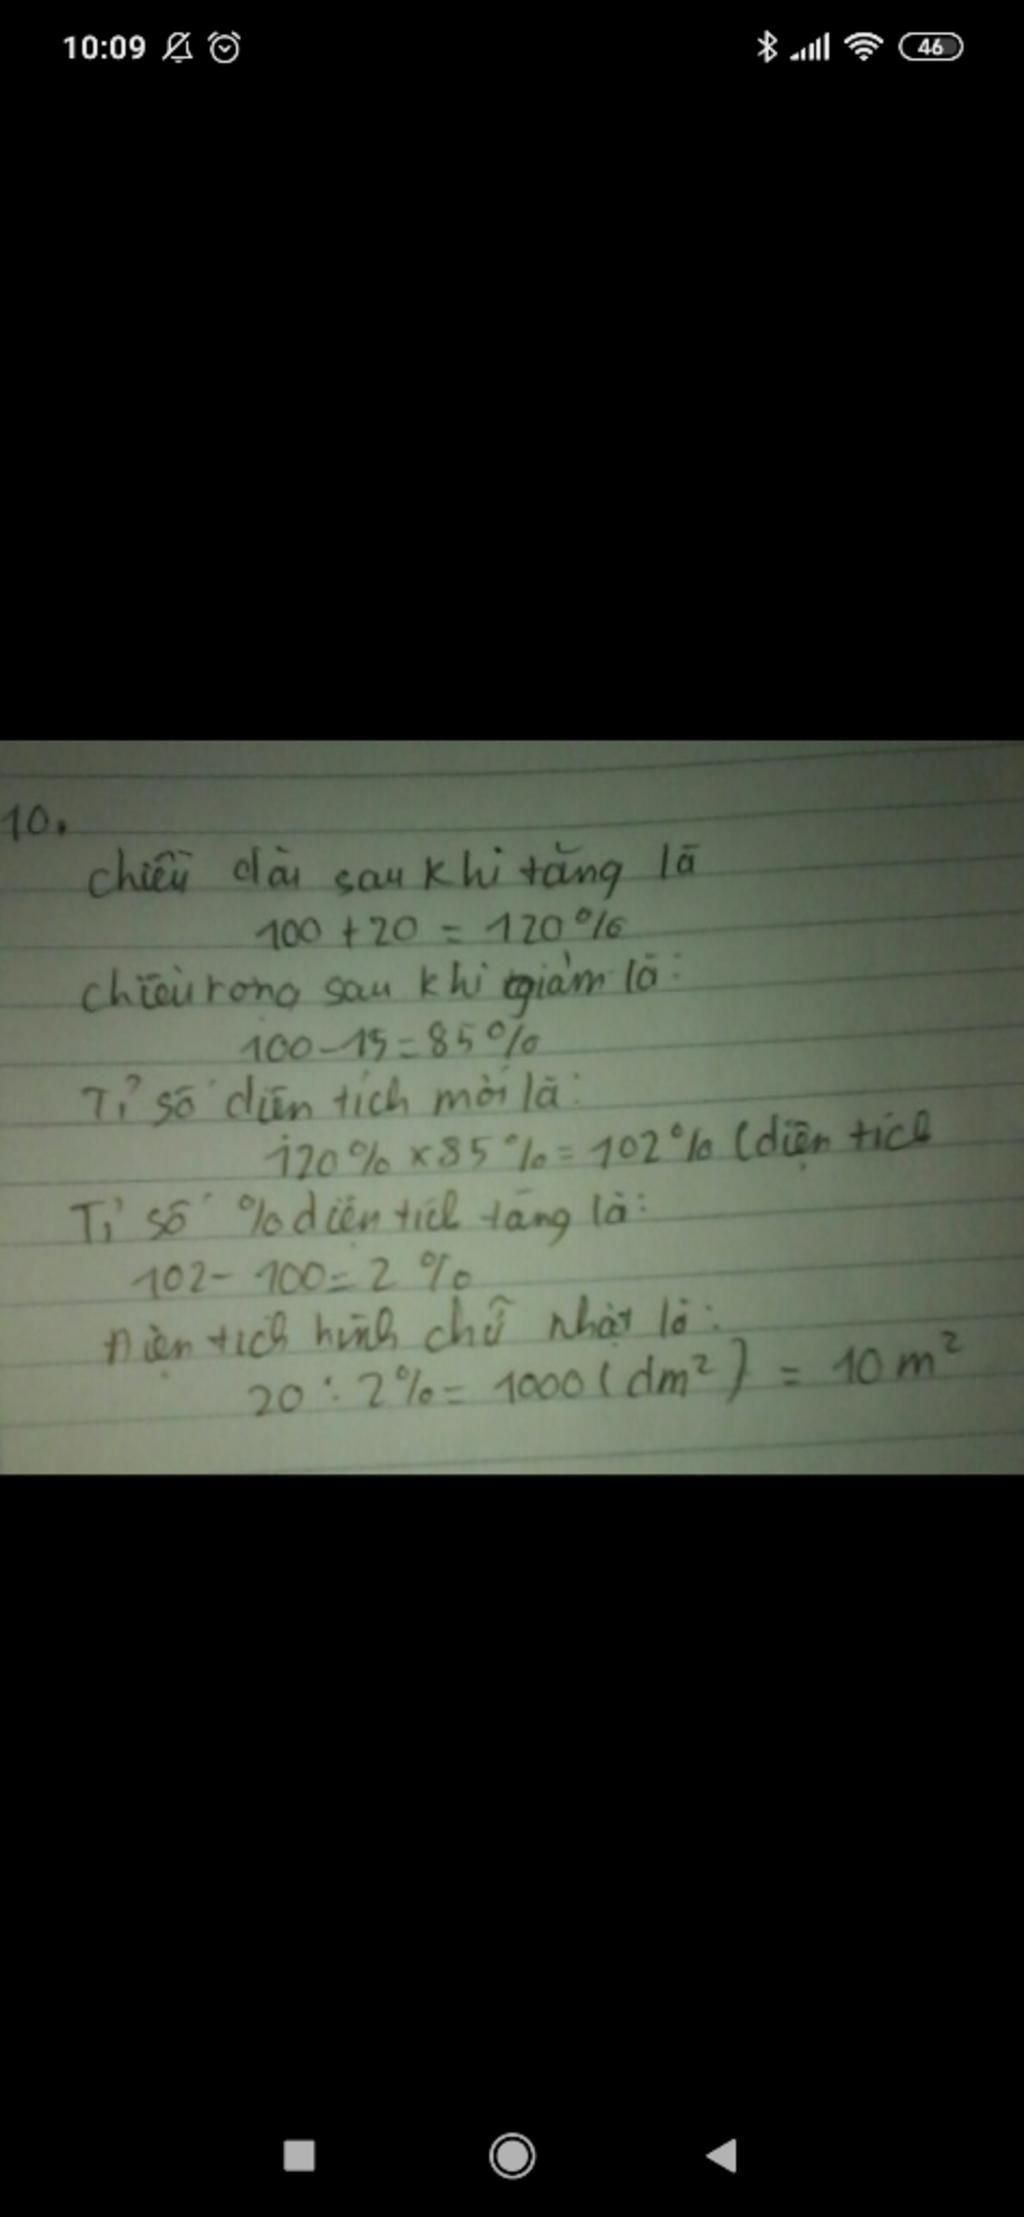 10:09 46
10.
chiều dài sau khi tăng là
100 + 20 = 120%
chiều rộng sau khi giảm là:
100 - 15 = 85%
Tỉ số diện tích mới là:
120% x 85% = 102% (diện tích
Tỉ số % diện tích tăng là:
102 - 100 = 2%
Diện tích hình chữ nhật là:
20 : 2% = 1000 (dm²) = 10 m²